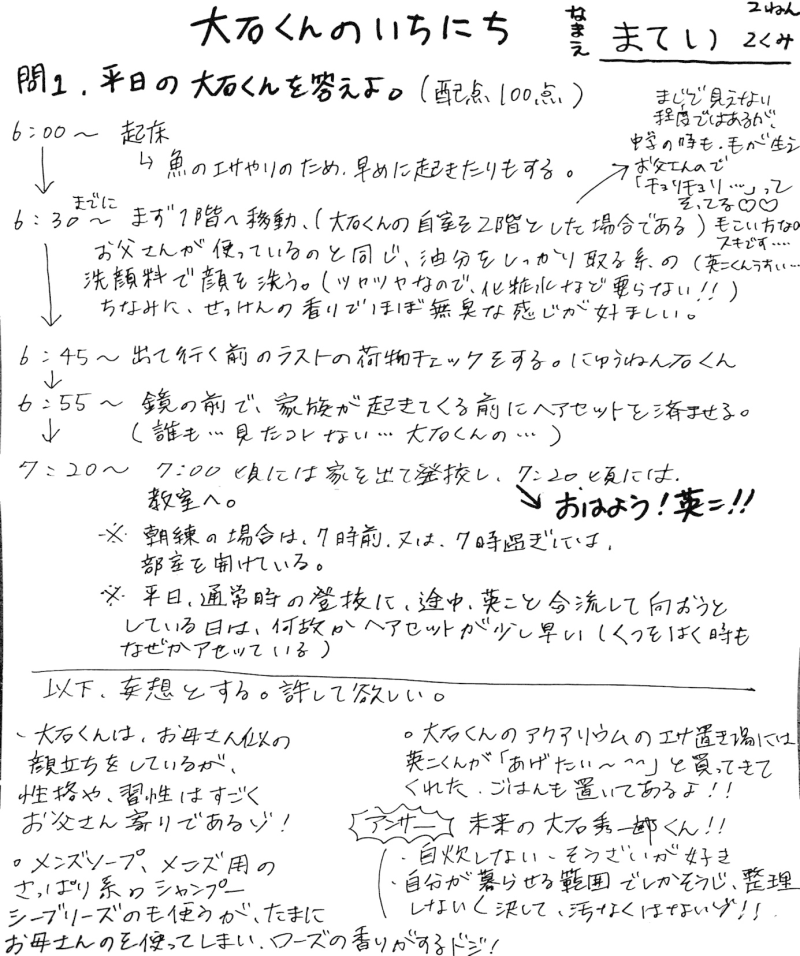 大石くんのいちにち
なまえ まてい 2ねん2くみ
問1. 平日の大石くんを答えよ。(配点100点)
6:00〜 起床
↳ 魚のエサやりのため、早めに起きたりもする。
まじで見えない
程度ではあるが、
中学の時も、毛が生え
お父さんので
「チョリチョリ…」って
そってる♡♡
もこい方なの
スキです….
(英二くんうすい…
6:30までに〜 まず1階へ移動、(大石くんの自室を2階とした場合である)
お父さんが使っているのと同じ、油分をしっかり取る系の
洗顔料で顔を洗う。(ツヤツヤなので、化粧水など要らない!!)
ちなみに、せっけんの香りでほぼ無臭な感じが好ましい。
6:45〜 出て行く前のラストの荷物チェックをする。にゅうねん石くん
6:55〜 鏡の前で、家族が起きてくる前にヘアセットを済ませる。
(誰も…見たコトない…大石くんの…)
7:20〜 7:00頃には家を出て登校し、7:20頃には、
教室へ。
おはよう!英二!!
※ 朝練の場合は、7時前、又は、7時過ぎには、
部室を開けている。
※ 平日、通常時の登校に、途中、英二と合流して向おうと
している日は、何故かヘアセットが少し早い(くつをはく時も
なぜかアセッている)
以下、妄想とする。許して欲しい。
・大石くんは、お母さん似の
顔立ちをしているが、
性格や、習性はすごく
お父さん寄りであるゾ!
○メンズソープ、メンズ用の
さっぱり系のシャンプー
シーブリーズのも使うが、たまに
お母さんのを使ってしまい、ローズの香りがするドジ!
○大石くんのアクアリウムのエサ置き場には
英二くんが「あげたい〜^^」と買ってきて
くれた、ごはんも置いてあるよ!!
アンサー 未来の大石秀一郎くん!!
・自炊しない、そうざいが好き
・自分が暮らせる範囲でしかそうじ、整理
しない〈決して、汚なくはないゾ!!